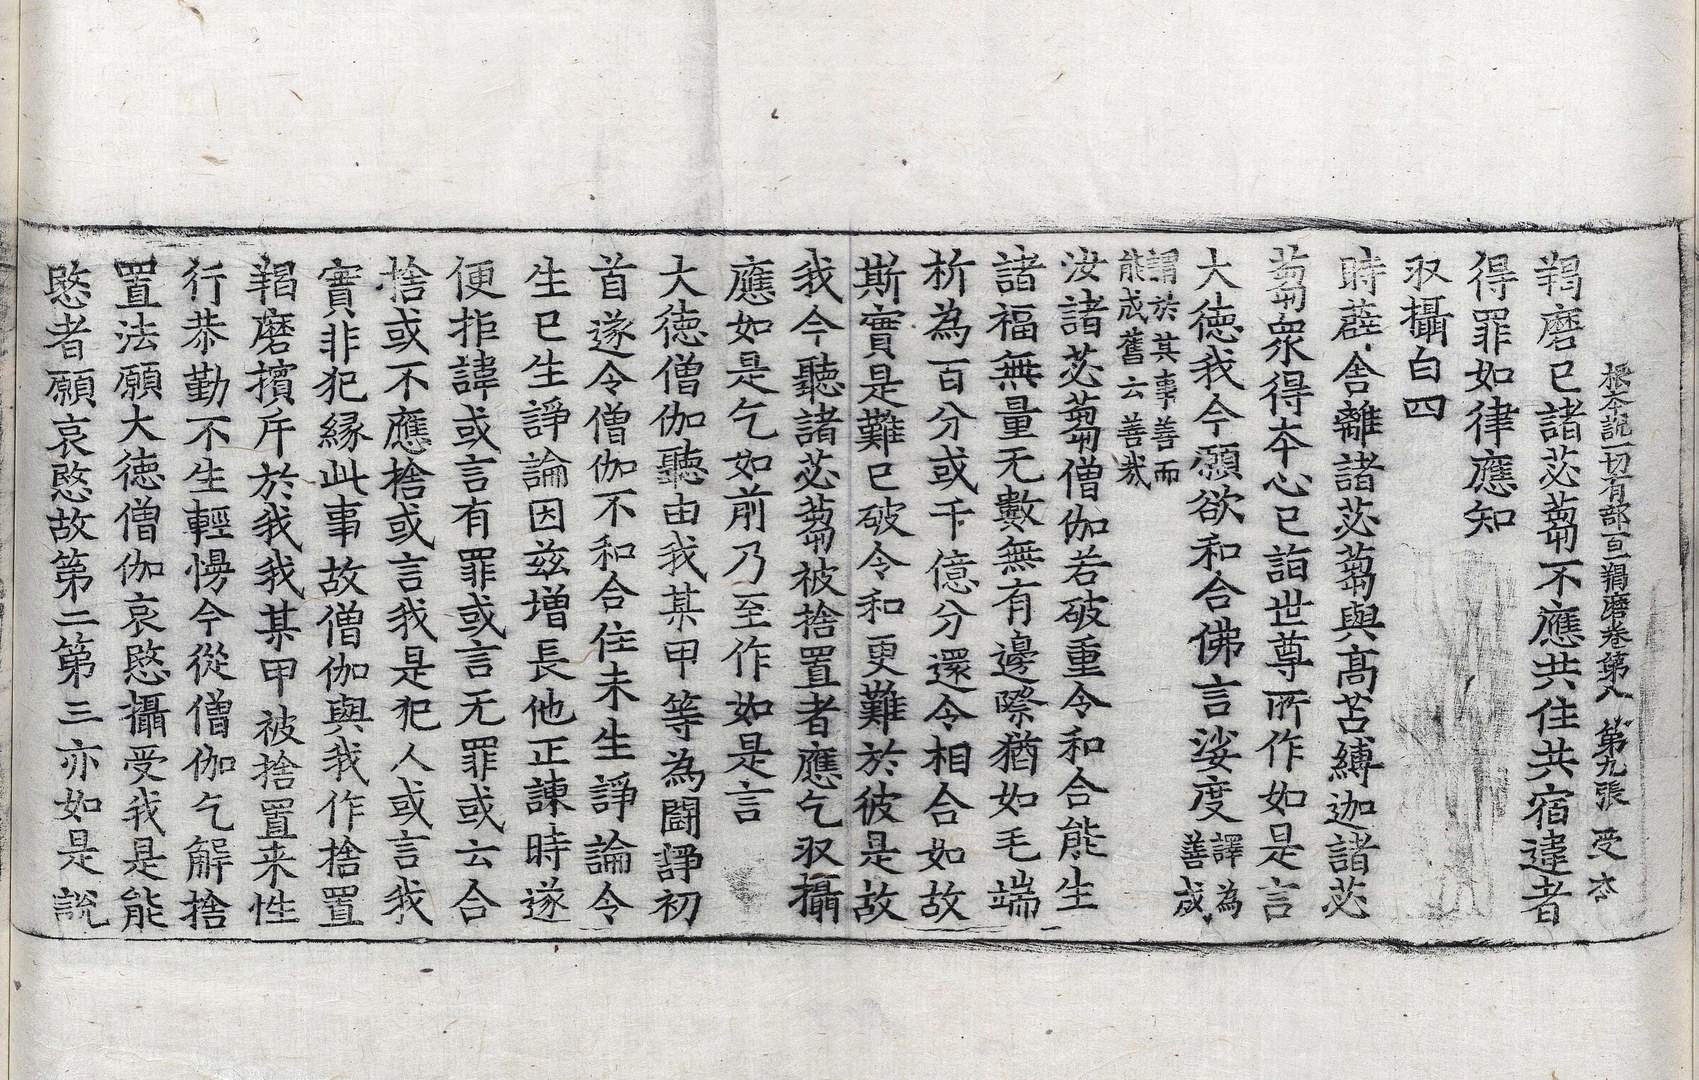 根本說一切有部百一羯磨卷第八　第九張　受
羯磨已諸苾蒭不應共住共宿違者
得罪如律應知
収攝白四
時薜舍離諸苾蒭與高苫縛迦諸苾
蒭衆得本心已詣世尊所作如是言
大徳我今願欲和合佛言娑度譯為善成
謂於其事善而能成舊云善哉
汝諸苾蒭僧伽若破重令和合能生
諸福無量无數無有邊際猶如毛端
析為百分或千億分還令相合如故
斯實是難已破令和更難於彼是故
我今聽諸苾蒭被捨置者應乞収攝
應如是乞如前乃至作如是言
大徳僧伽聽由我某甲等為闘諍初
首遂令僧伽不和合住未生諍論令
生已生諍論因兹増長他正諫時遂
便拒諱或言有罪或言无罪或云合
捨或不應捨或言我是犯人或言我
實非犯縁此事故僧伽與我作捨置
羯磨擯斥於我我某甲被捨置来性
行恭勤不生輕慢今從僧伽乞解捨
置法願大徳僧伽哀愍攝受我是能
愍者願哀愍故第二第三亦如是說